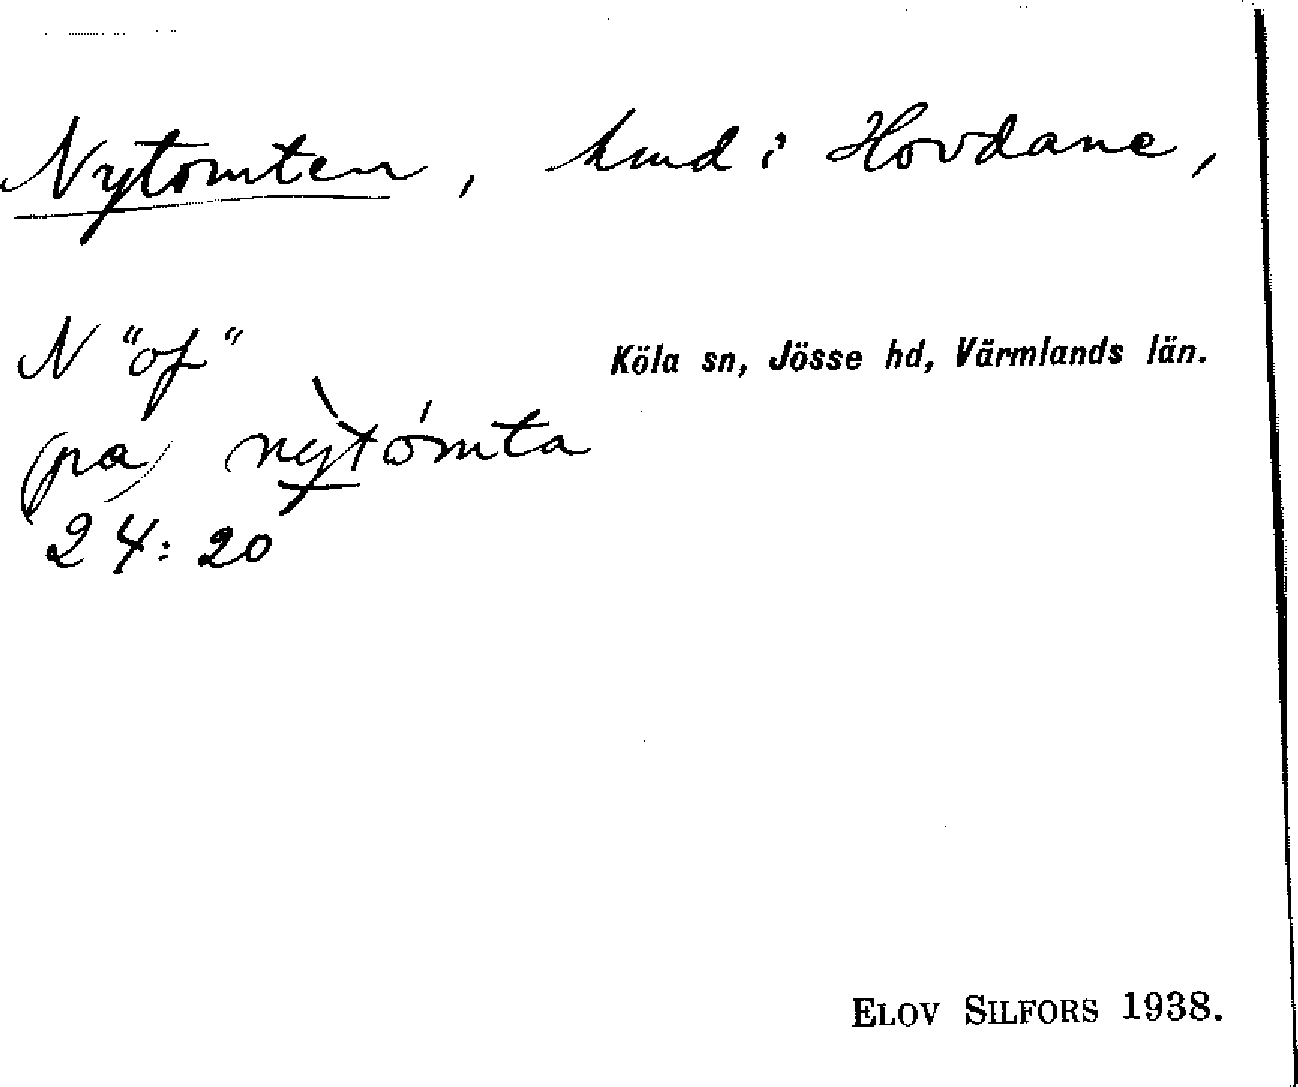 Nytomten, hmd i Hovdane,
N "of"
Köla sn, Jösse hd, Värmlands län.
(pa) nỳtómta
24:20
ELOV SILFORS 1938.